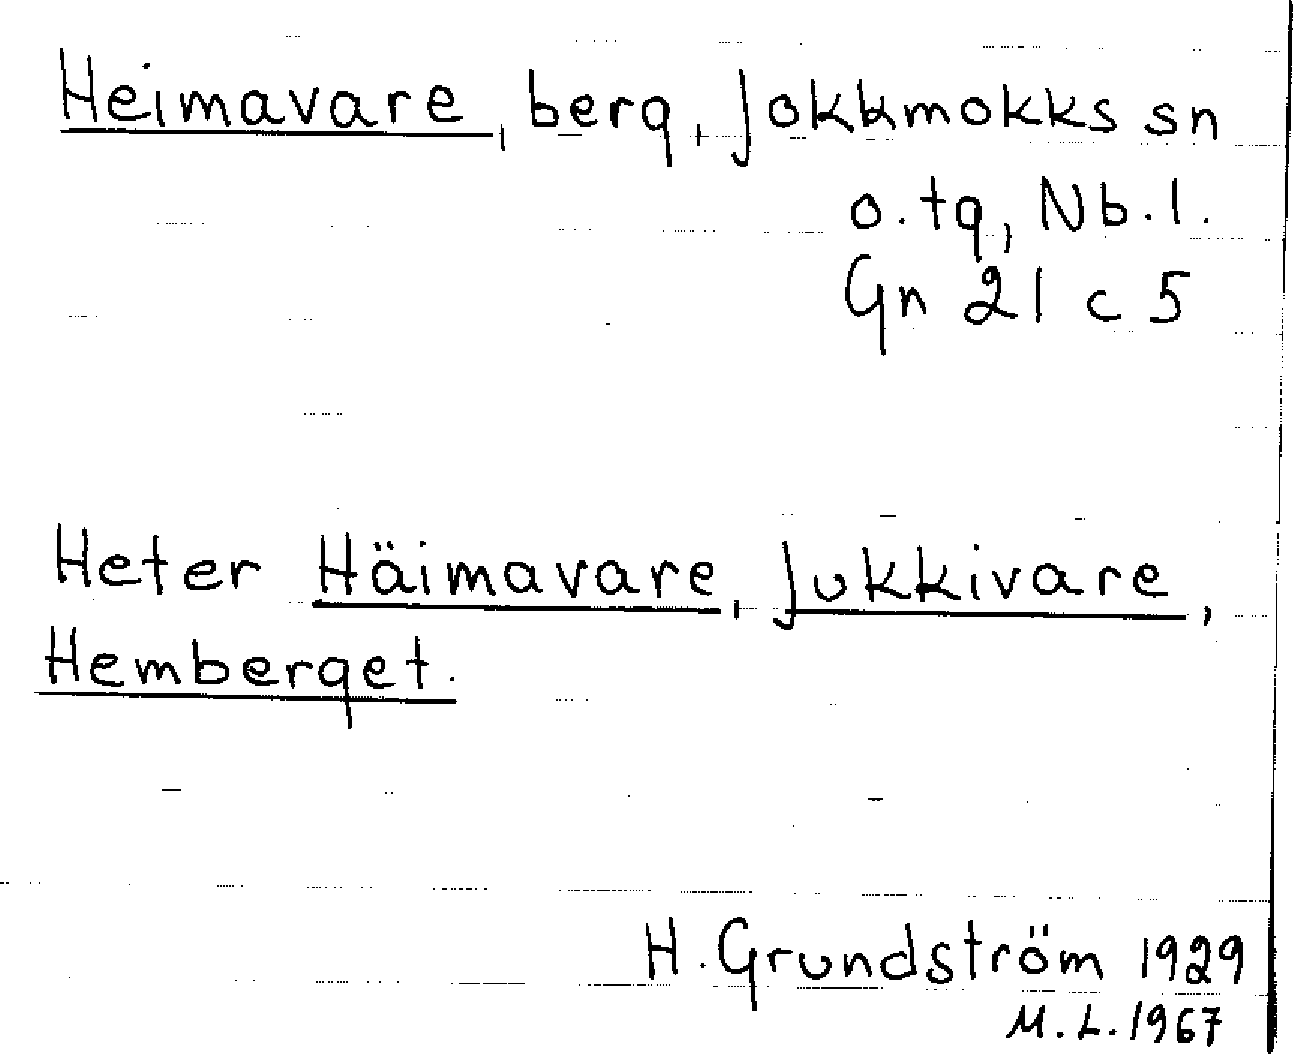 Heimavare, berg, Jokkmokks sn
o. tg, Nb. l.
Gn 21 c 5
Heter Häimavare, Jukkivare,
Hemberget.
H. Grundström 1929
M. L. 1967